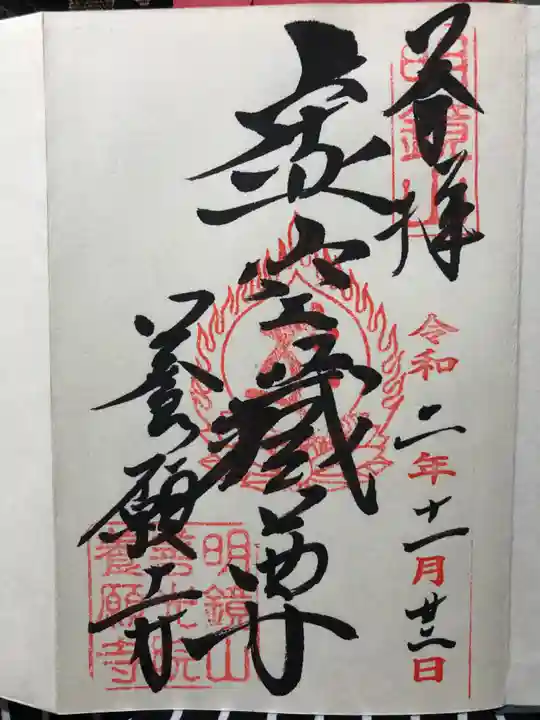 明鏡山
奉拝
令和二年十一月廿二日
虚空藏尊
養願寺
明鏡山
善光院
養願寺